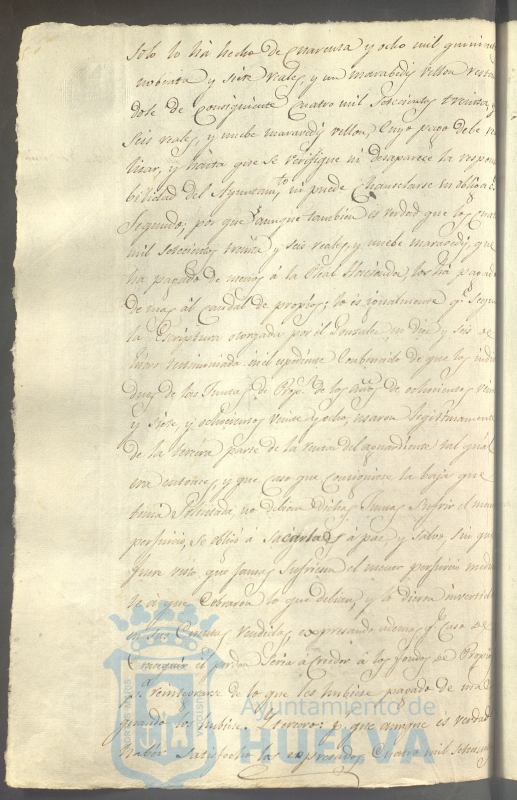 solo lo ha hecho de quarenta y ocho mil quinien
nobenta y siete reales, y un maravedis vellon restan
dole de consiguiente quatro mil setecientos treinta y
seis reales, y nuebe maravedis vellon, cuyo pago debe re
lisar, y hasta que se verifique ni desaparece la respon
bilidad del Ayuntam.to ni puede Chancelarse
Segundo: por que aunque tambien es verdad que los cuatro
mil setecientos treinta y seis reales, y nuebe maravedis, que
ha pagado de menos á la Real Hacienda, los ha pagado
de mas al caudal de propios; lo es igualmente q.e segun
la Escriptura otorgada por el Gonzalez en diez y seis de
testimoniada en el espediente de que los indi
duos de las Juntas de Prop.s de los años de ochocientos vein
y siete, y ochocientos veinte y ocho, usaron legitimamente
de la tercera parte de la renta del aguardiente tal qual
era entonces, y que caso que consiguiese la baja que
tenia solicitada, no debian dichas Juntas sufrir el menor
perjuicio, se obligó á sacarlas á paz, y salvo, sin que
fuere visto, que jamas sufririan el menor perjuicio
te á que cobraron lo que debian, y lo dieron invertido
en sus Cuentas rendidas, expresando ademas q.e caso de
el perdon seria acredor á los fondos de Propios
p.a reintegrarse de lo que les hubiese pagado de mas
quando los hubiese. Tercero: p.r que aunque es verdad
haber satisfecho las expresados cuatro mil setecien
Ayuntamiento de
HUELVA